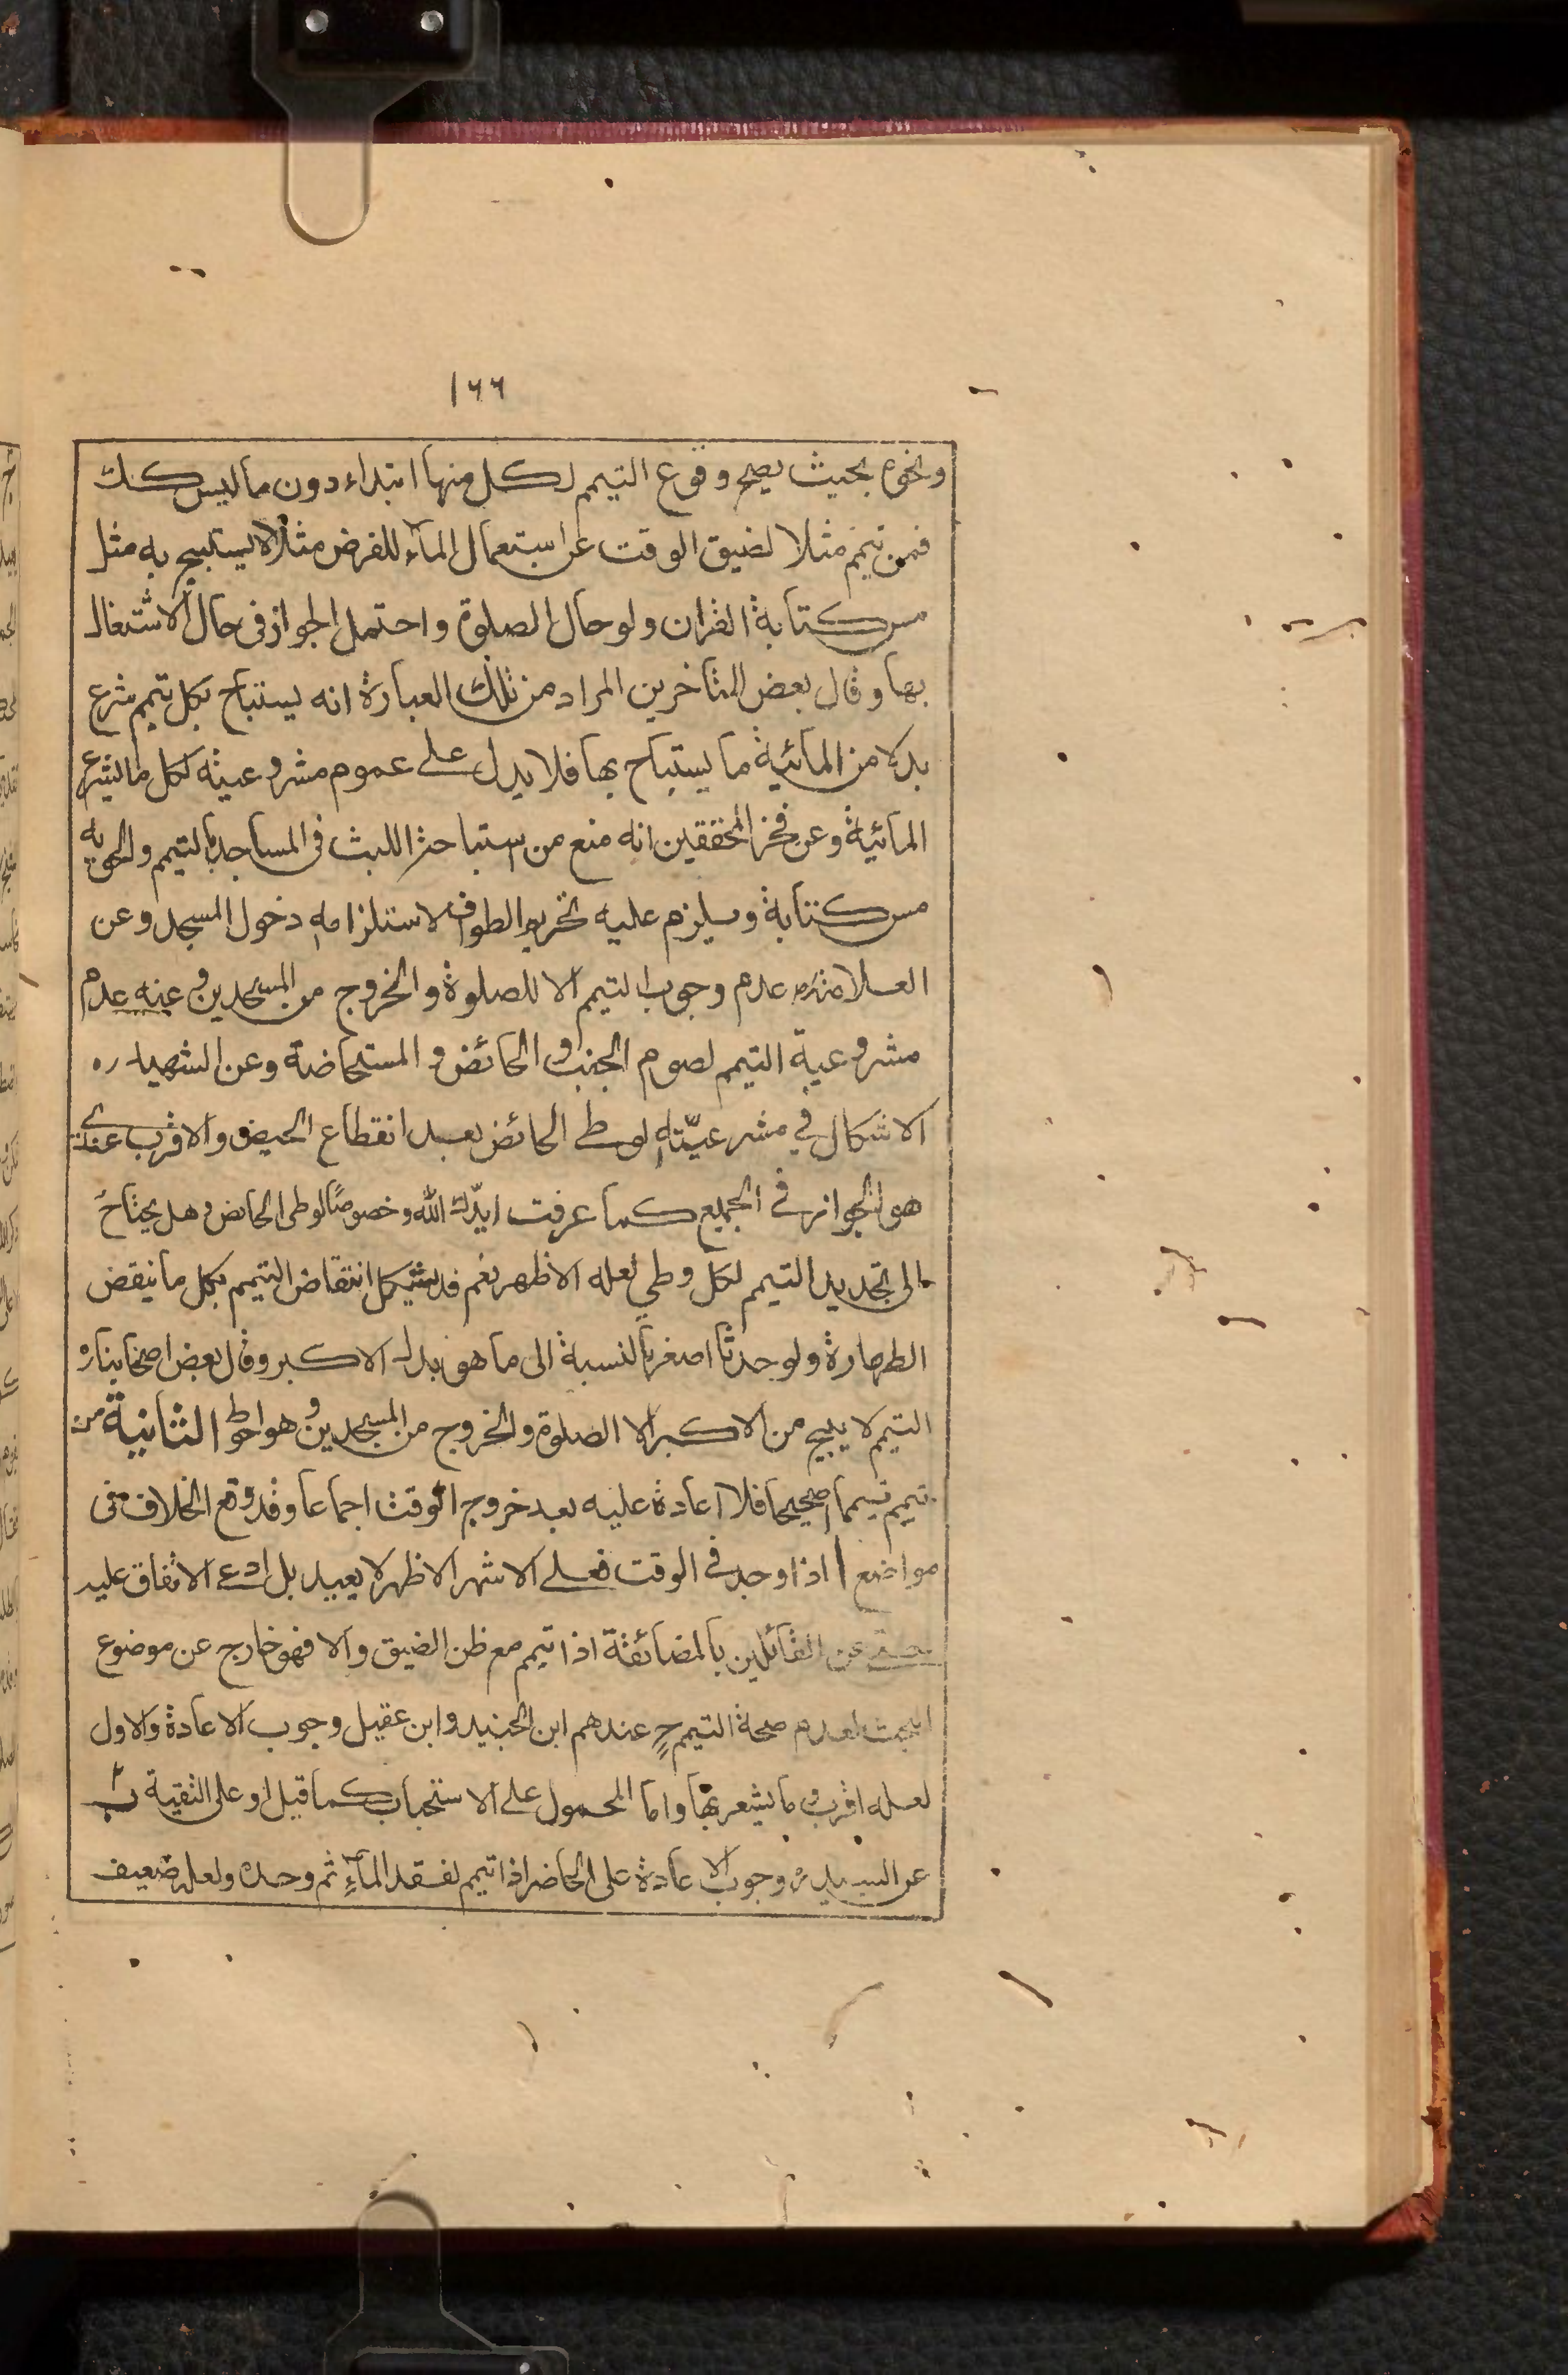 ١٦٦
ونحوه بحيث يصح وقوع التيمم لكل منها ابتداء دون ما ليس كك
فمن تيمم مثلا لضيق الوقت عن استعمال الماء للفرض مثلا لا يستبيح به مثل
مس كتابة القران ولو حال الصلوة واحتمل الجواز فى حال الاشتغال
بها وقال بعض المتاخرين المراد من تلك العبارة انه يستباح بكل تيمم شرع
بدلا من المائية ما يستباح بها فلا يدل على عموم مشروعيته لكل ما يشرع
المائية وعن فخر المحققين انه منع من استباحة اللبث فى المساجد بالتيمم والحق به
مس كتابة ويلزم عليه تحريم الطواف لاستلزامه دخول المسجد وعن
العلامة ره عدم وجوب التيمم الا للصلوة والخروج من المسجدين وعنه عدم
مشروعية التيمم لصوم الجنب والحائض والمستحاضة وعن الشهيد ره
الاشكال في مشرعيّته لوطى الحائض بعد انقطاع الحيض والاقرب عندى
هو الجواز في الجميع كما عرفت ايّدك الله وخصوصًا لوطى الحايض وهل يحتاج
الى تجديد التيمم لكل وطي لعله الاظهر نعم قد يشكل انتقاض التيمم بكل ما ينقض
الطهارة ولو حدثا اصغر بالنسبة الى ما هو بدل الاكبر وقال بعض اصحابنا ره
التيمم لا يبيح من الاكبر الا الصلوة والخروج من المسجدين وهو احوط الثانية من
تيمم تيمما صحيحا فلا اعادة عليه بعد خروج الوقت اجماعا وقد وقع الخلاف فى
مواضع ا اذا وجد في الوقت فعلى الاشهر الاظهر لا يعيد بل ادعى الاتفاق عليه
حتى عن القائلين بالمضائقة اذا تيمم مع ظن الضيق والا فهو خارج عن موضوع
البحث لعدم صحة التيمم ح عندهم ابن الجنيد وابن عقيل وجوب الاعادة والاول
لعله اقرب وما يشعر بها واما المحمول على الاستحباب كما قيل او على التقية ب
عن السيد ره وجوب الاعادة على الحاضر اذا تيمم لفقد الماء ثم وجده ولعله ضعيف